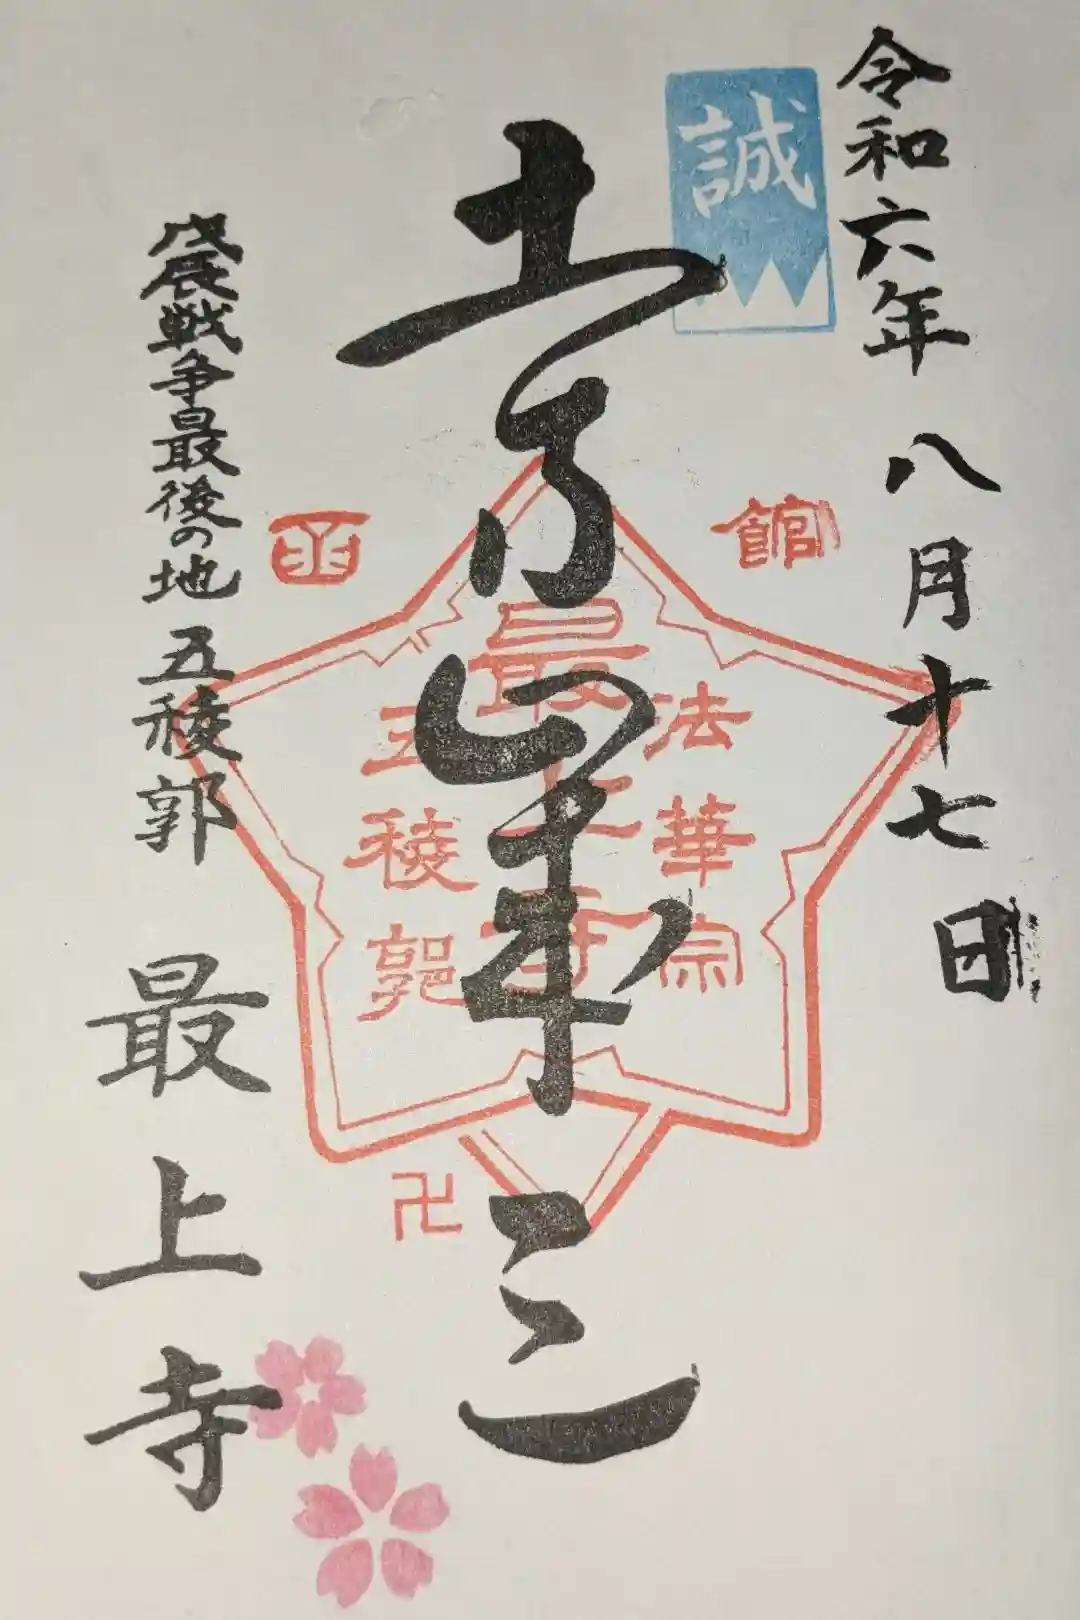 令和六年 八月十七日
誠
土方歳三
函館
法華宗
最上寺
五稜郭
卍
戊辰戦争最後の地 五稜郭 最上寺